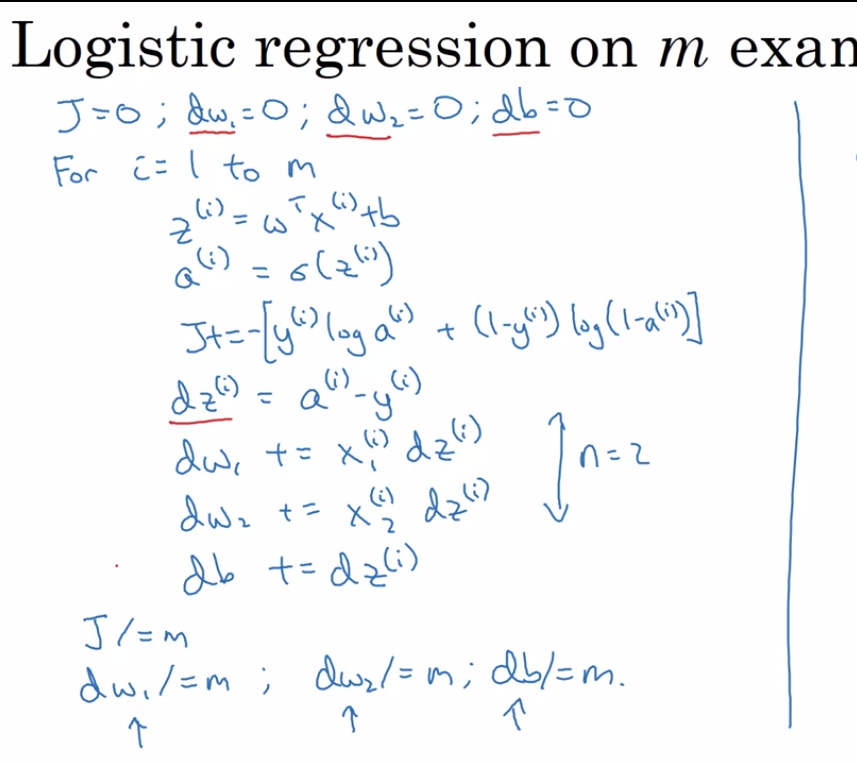 Logistic regression on m exan
J=0; dw₁=0; dw₂=0; db=0
For i=1 to m
z⁽ⁱ⁾ = ωᵀx⁽ⁱ⁾+b
a⁽ⁱ⁾ = σ(z⁽ⁱ⁾)
J+=-[y⁽ⁱ⁾ log a⁽ⁱ⁾ + (1-y⁽ⁱ⁾) log(1-a⁽ⁱ⁾)]
dz⁽ⁱ⁾ = a⁽ⁱ⁾-y⁽ⁱ⁾
dw₁ += x₁⁽ⁱ⁾ dz⁽ⁱ⁾
n=2
dw₂ += x₂⁽ⁱ⁾ dz⁽ⁱ⁾
db += dz⁽ⁱ⁾
J/=m
dw₁/=m; dw₂/=m; db/=m.